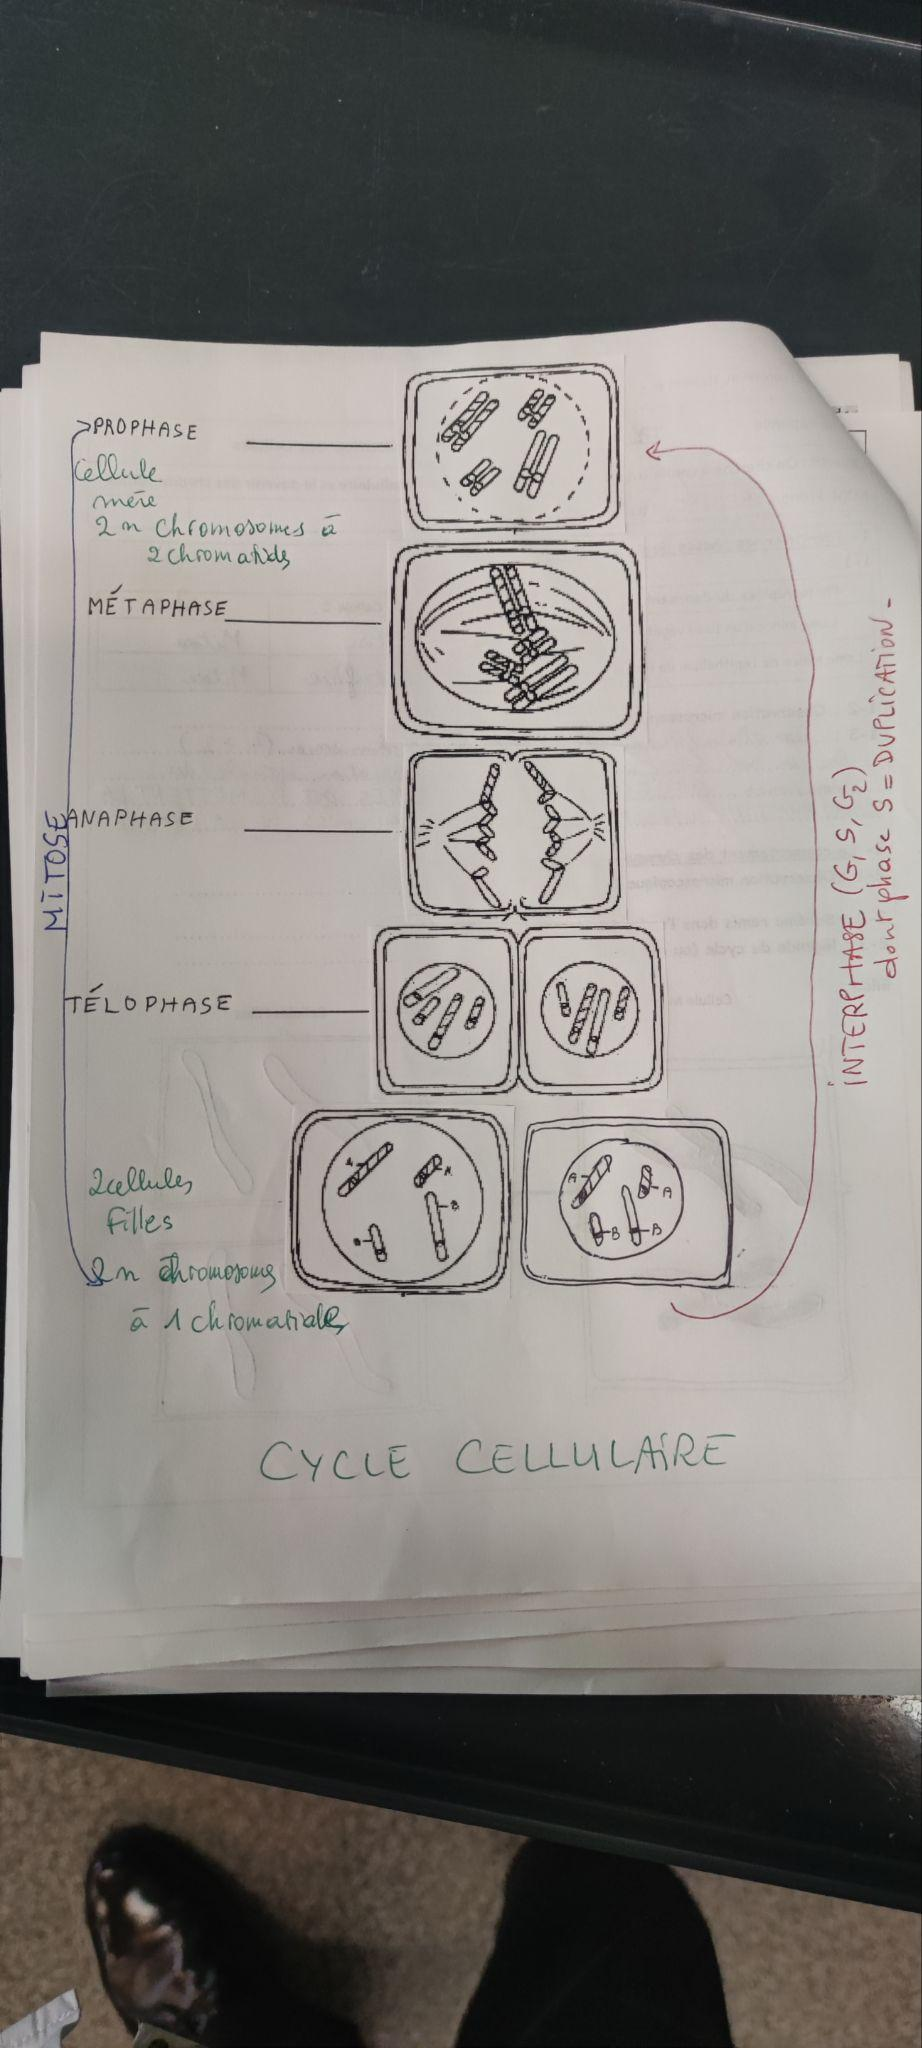 PROPHASE
Cellule
mère
2n chromosomes à
2 chromatids
MÉTAPHASE
ANAPHASE
TÉLOPHASE
MITOSE
2 cellules
filles
2n chromosomes
à 1 chromatide
A
A
B
B
A
A
B
B
INTERPHASE (G, S, G2)
dont phase S = DUPLICATION -
CYCLE CELLULAIRE